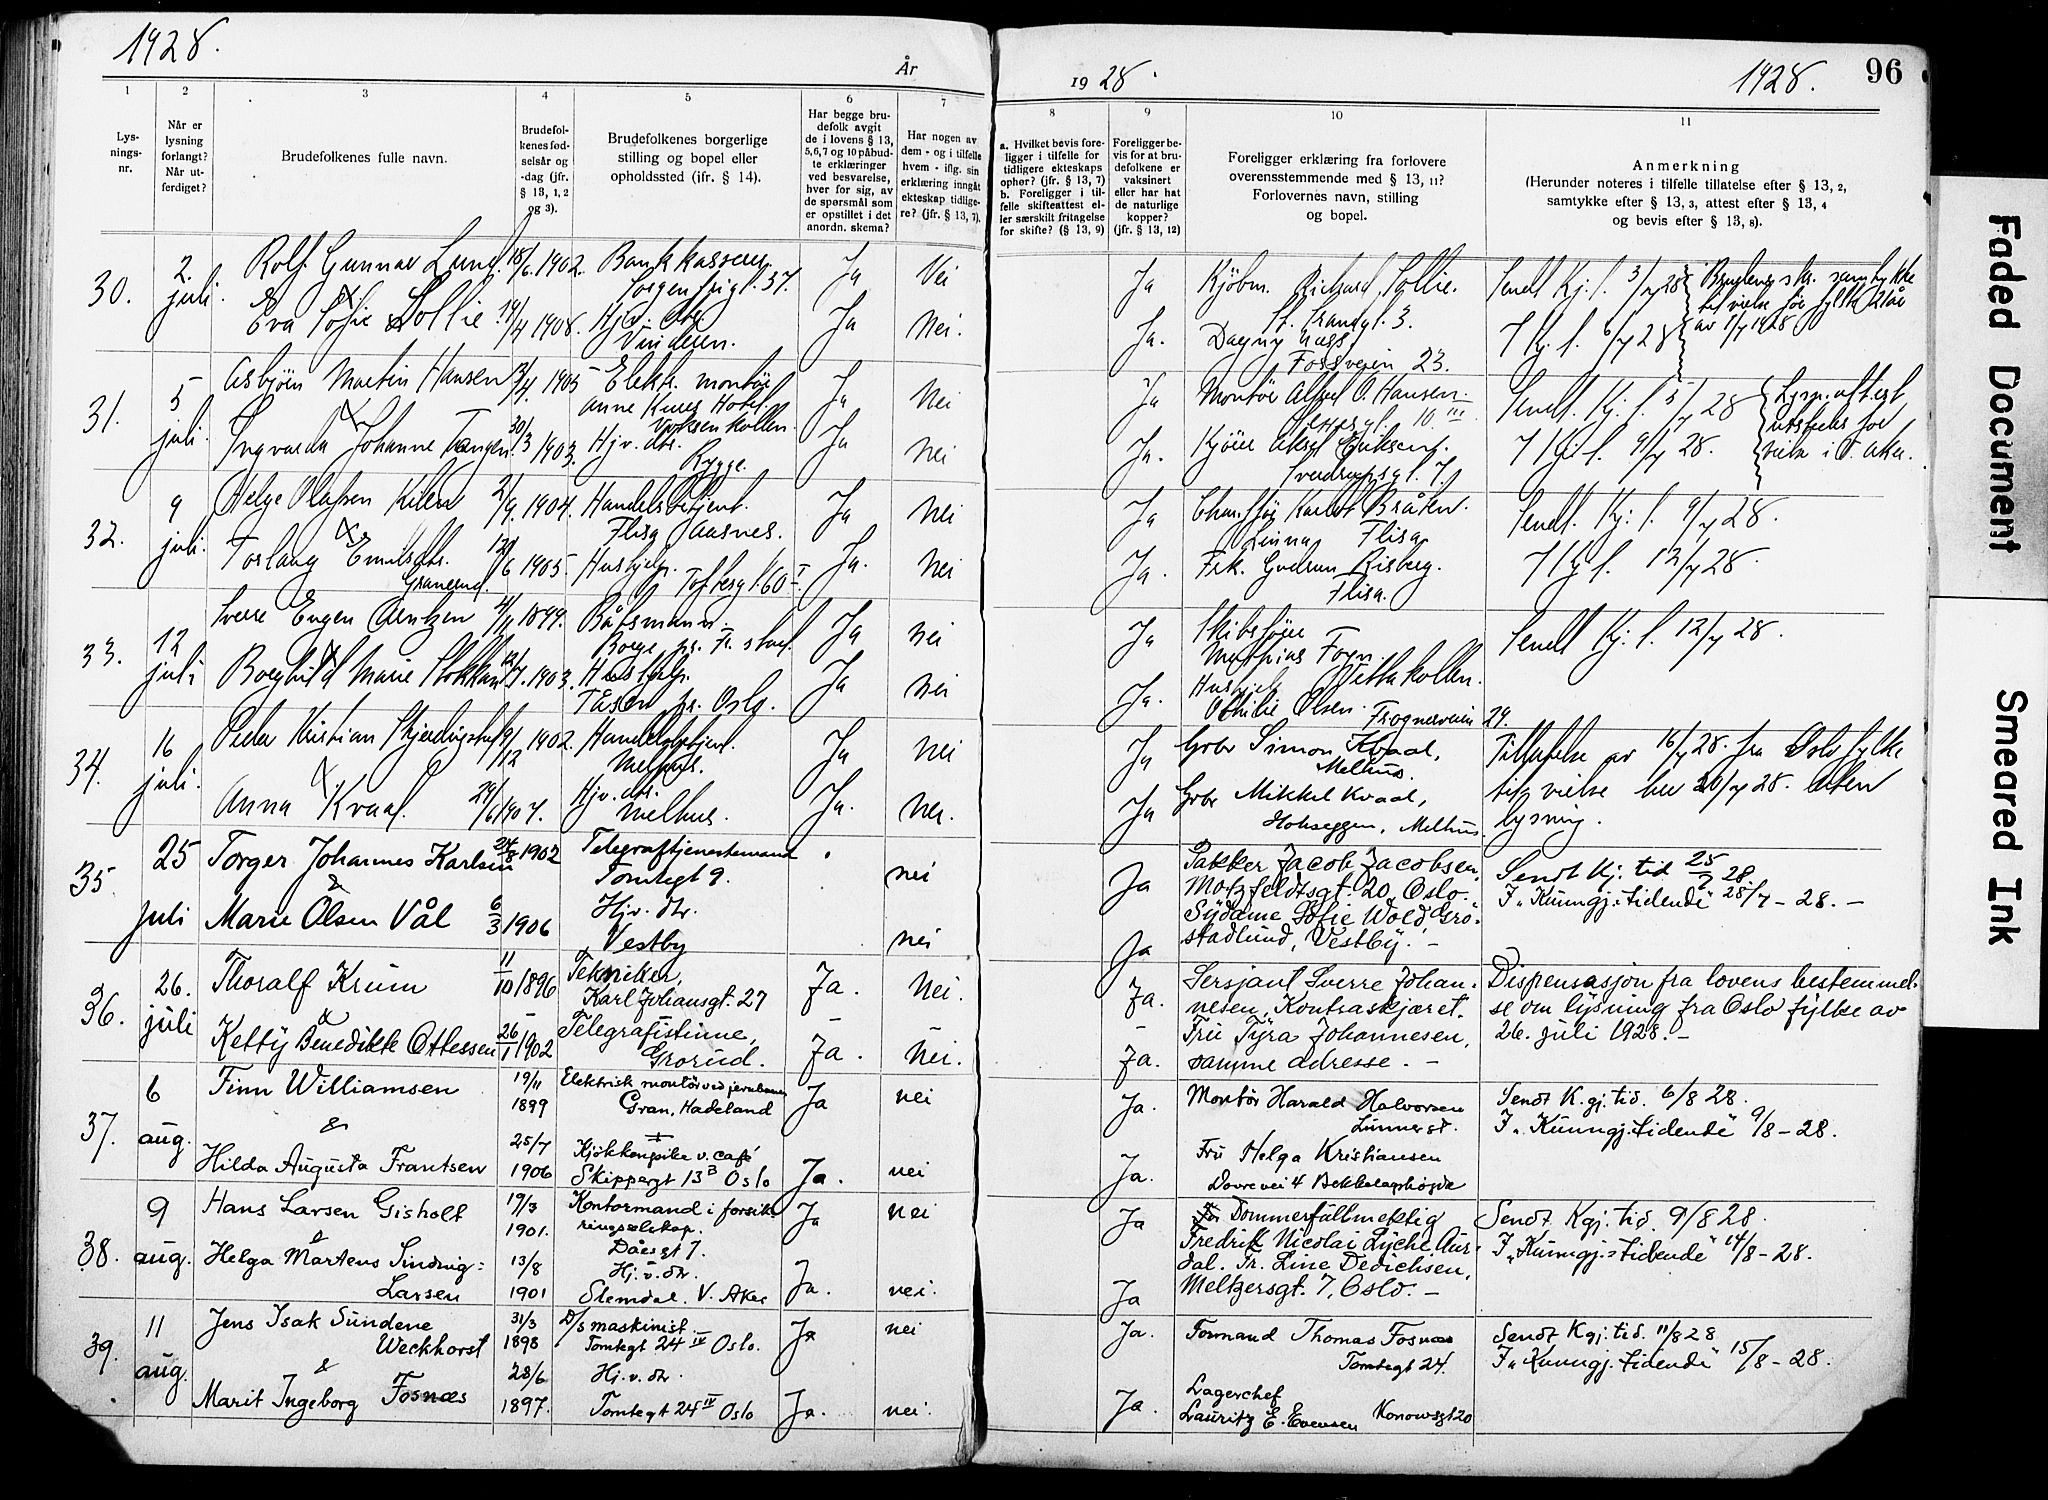 1928.
År
1
2
3
4
5
6
7
Lys-
nings-
nr.
Når er
lysning
forlangt?
Når ut-
ferdiget?
Brudefolkenes fulle navn.
Brudefol-
kenes fød-
selsår og
-dag (jfr.
§ 13, 1, 2
og 3).
Brudefolkenes borgerlige
stilling og bopel eller
opholdssted (ifr. § 14).
Har begge bru-
defolk avgit
de i lovens § 13,
5,6,7 og 10 påbud-
te erklæringer
ved besvarelse,
hver for sig, av
de spørsmål som
er opstillet i det
anordn. skema?
Har nogen av
dem - og i tilfelle
hvem - iflg. sin
erklæring inngått
ekteskap tidlige-
re? (jfr. § 13, 7).
30.
2.
juli.
Rolf Gunnar Lund. 18/6. 1902. Bankkasserer. Ja Nei
Sorgenfrigt. 37.
&
Eva Sofie Sollie. 14/4 1908. Hjv. dtr. Ja Nei.
Vinderen.
31.
5
juli.
Asbjörn Martin Hansen 3/4. 1905 Elektr. montör Ja Nei
Anne Kures Hotel.
Voksenkollen.
&
Ingvarda Johanne Tangen. 30/3 1903. Hjv. dtr. Ja nei
Rygge.
32.
9
juli.
Helge Olafsen Kilen 2/9. 1904. Handelsbetjent. Ja nei
Flisa Aasnes.
&
Torlaug Emilsdtr. 12/6 1905. Hushjelp. Ja. nei
Granerud. Toftesgt. 60 I
33.
12
juli
Sverre Eugen Arntzen 4/11 1899. Båtsmann. Ja nei
Borge pr. Fr. stad.
&
Borghild Marie Stokkan 12/7. 1903. Hushjelp. Ja nei
Tåsen pr. Oslo.
34.
16
juli.
Peder Kristian Skjerdingstad 9/12 1902. Handelsbetjent. Ja nei
Melhus.
&
Anna Kvaal. 24/6 1907. Hjv. dtr. Ja. nei.
Melhus.
35.
25
juli
Torger Johannes Karlsen 24/8 1902 Telegraftjenestemand nei
Tomtegt 9.
&
Marie Olsen Vål 6/3 1906 Hjv. dtr. nei
Vestby
36.
26.
juli
Thoralf Krum 11/10 1896 Tekniker, Ja. Nei.
Karl Johansgt. 27
&
Ketty Benedikte Ottessen 26/1 1902 Telegrafistinne, Ja. Nei.
Grorud.
37.
6
aug.
Finn Williamsen 19/11 1899 Elektrisk montör ved jernbanen Ja nei
Gran, Hadeland
&
Hilda Augusta Frantsen 25/7 1906 Kjökkenpike v. café Ja. nei
Skippergt 13 B Oslo
38.
9
aug.
Hans Larsen Gisholt 19/3 1901. Kontormand i forsik- Ja nei
ringsselskap.
Dåesgt 7.
&
Helga Martens Sinding- 13/8 1901 Hj. v. dtr. Ja. nei.
Larsen Slemdal. V. Aker
39.
11
aug.
Jens Isak Sundene 31/3 1898 D/s maskinist. Ja nei
Weckhorst Tomtegt 24 IV Oslo.
&
Marit Ingeborg Fosnæs 28/6 1897. Hj. v. dtr. Ja. nei.
Tomtegt 24 IV Oslo
1928.
1928.
96
8
9
10
11
a. Hvilket bevis fore-
ligger i tilfelle for
tidligere ekteskaps
ophør? (jfr. § 13, 7)
b. Foreligger i til-
felle skifteattest el-
ler særskilt fritagelse
for skifte? (§ 13, 9)
Foreligger be-
vis for at bru-
defolkene er
vaksinert
eller har hat
de naturlige
kopper?
(jfr. § 13, 12)
Foreligger erklæring fra forlovere
overensstemmende med § 13, 11?
Forlovernes navn, stilling
og bopel.
Anmerkning
(Herunder noteres i tilfelle tillatelse efter § 13, 2,
samtykke efter § 13, 3, attest efter § 13, 4
og bevis efter § 13, 8).
Ja Kjöbm. Richard Sollie. Sendt Kj. t. 3/7 28 Brudens skr. samtykke
til vielse før fylte 21 år
av 1/7 1928
gt. 3.
Ja. Dagny Næss. I Kj. t. 6/7 28
Fossveien 23.
Ja Montör Alfred O. Hansen. Sendt. Kj. t. 5/7 28 Lysn. attest
utstedt for
vielse i V. Aker.
10. III
Ja. Aksel Eriksen. I Kj. t. 9/7 28.
Sverdrupsgt. 7.
Ja Karl Bråten. Sendt. Kj. t. 9/7 28.
Linna Flisa
Ja. Frk. Gudrun Risberg. I Kj. t. 12/7 28.
Flisa.
Ja Skibsförer Sendt Kj. t. 12/7 28.
Mathias Fogn.
Vettakollen.
Ja. Hushjelp
Othilie Olsen. Frognerveien 29.
Ja Grbr Simon Kvaal, Tillatelse av 16/7 28. fra Oslo fylke
Melhus. til vielse her 20/7 28. uten
Ja Grbr Mikkel Kvaal, lysning.
Hohseggen, Melhus.
Ja Pakker Jacob Jacobsen, Sendt Kj. tid 25/7 28.
Motzfeldtsgt. 20, Oslo. I „Kunngj. tidende" 28/7 - 28. —
Ja Sydame Sofie Wold, Grö-
stadlund, Vestby. —
Ja. Sersjant Sverre Johan- Dispensasjon fra lovens bestemmel-
nesen, Kontraskjæret. se om lysning fra Oslo fylke av
Ja. Fru Tyra Johannesen, 26. juli 1928. —
samme adresse. —
Ja. Montör Harald Halvorsen Sendt K.gj. tid. 6/8 28.
Lunner st. I „Kunngj. tidende" 9/8 - 28.
Ja. Fru Helga Kristiansen
Dovrevei 4 Bekkelagshögda
Ja Dommerfullmektig Sendt Kgj. tid. 9/8 28.
Fredrik Nicolai Lyche, Aur- I „Kunngj. tidende" 14/8 - 28.
dal. Fr. Line Dedichsen,
Ja Meltzersgt. 7, Oslo. —
Ja. Formand Thomas Fosnæs Sendt Kgj. tid. 11/8 28
Tomtegt 24. I „Kunngj. tidende" 15/8 - 28.
Ja. Lagerchef
Lauritz E. Evensen Konowsgt 20
Faded Document
Smeared Ink